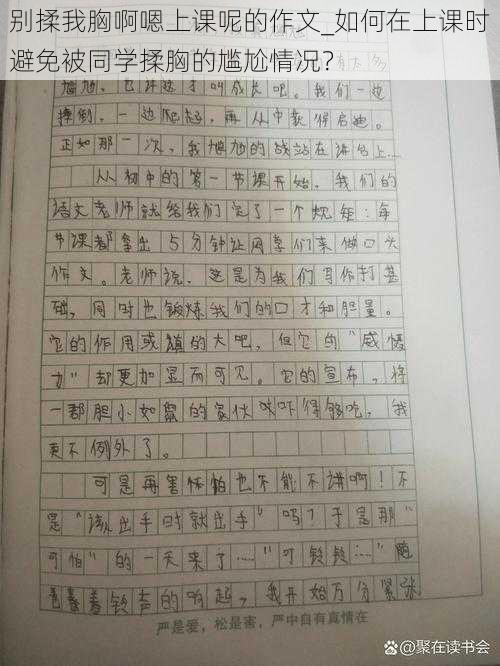 别揉我胸啊嗯上课呢的作文_如何在上课时
避免被同学揉胸的尴尬情况?
尴尬，也许这才叫成长吧。我们一边
摔倒，一边爬起，再从中获得启迪。
正如那一次，我尴尬的战站在讲台上…
从初中的第一节课开始，我们的
语文老师就给我们定了一个规矩：每
节课都拿出5分钟让同学们来做口头
作文。老师说，这是为我们写作打基
础，同时也锻炼我们的口才和胆量。
它的作用或许的大吧，但它的“威慑
力”却更加显而可见。它的宣布，将
一群胆小如鼠的家伙吓得够呛，我
更不例外了。
可是再害怕也不能不讲啊！不
是“该出手时就出手”吗？于是那“
可怕”的一天来了……“叮铃铃……”随
着铃声的响起，我开始万分紧张
严是爱，松是害，严中自有真情在
@聚在读书会